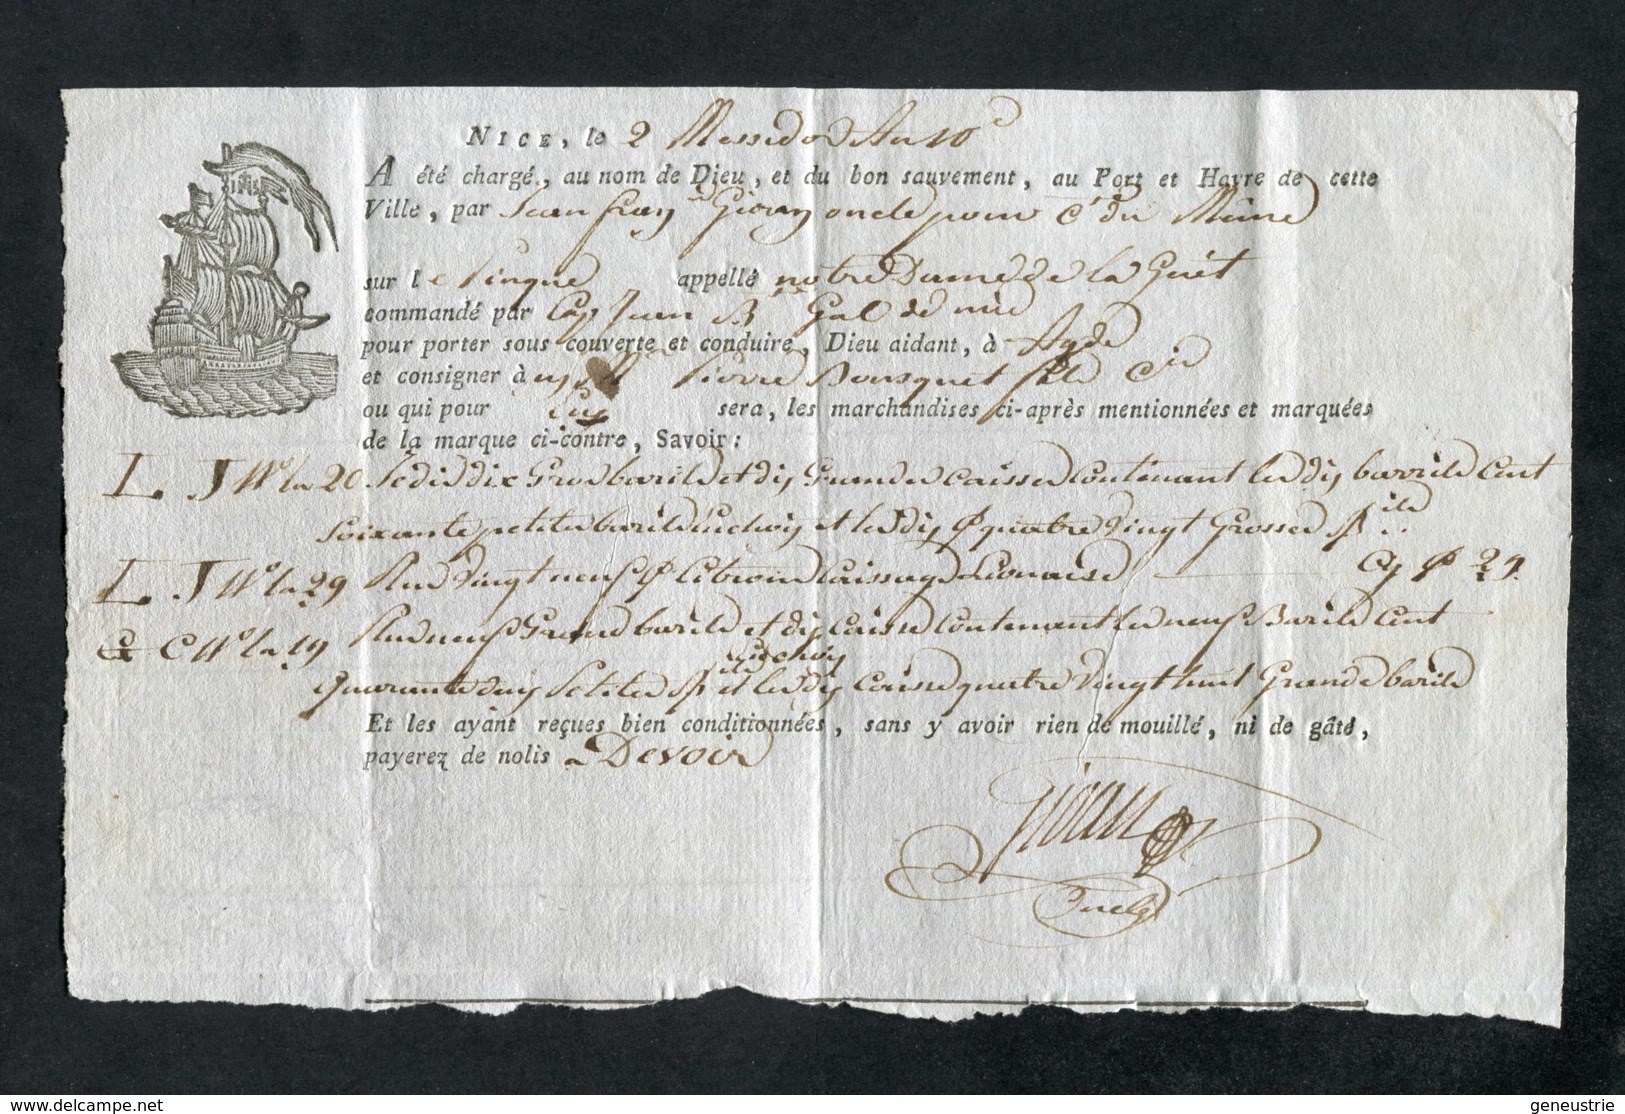 NICE, le 2 Messidor An 10e
A été chargé, au nom de Dieu, et du bon sauvement, au Port et Havre de cette
Ville, par Jean Gioan oncle pour Cte du Même
sur le Pinque appellé notre Dame de la
commandé par Cap Jean Bte Gal de
pour porter sous couverte et conduire, Dieu aidant, à Agde
et consigner à Pierre Bousquet fils Cie
ou qui pour sera, les marchandises ci-après mentionnées et marquées
de la marque ci-contre, Savoir:
L J No 1 a 20 dix Gros barils et dix Grandes caisses Contenant les dix barrils Cent
Soixante petites barils et les dix quatre Vingt Grosses
L J No 1 a 29 Vingt neuf Citron Caissage Lionaise 29.
C No 1 a 19 neuf Grands barils et dix Caisse Contenant les neuf Barils Cent
Quarante Petites et les dix Caisse quatre Vingt huit Grande barils
Et les ayant reçues bien conditionnées, sans y avoir rien de mouillé, ni de gâté,
payerez de nolis a Devoir
Gioan
geneustrie